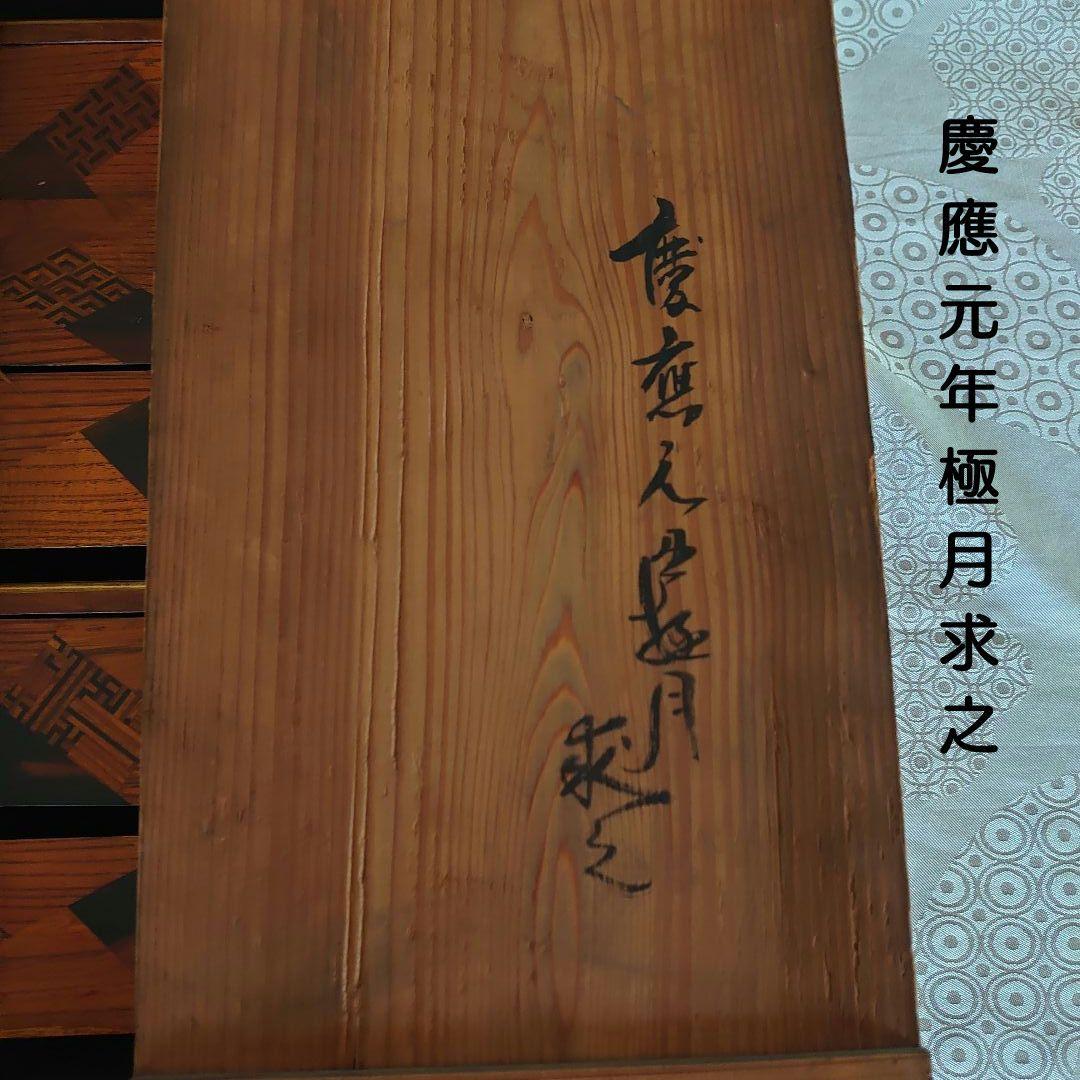 慶應元年極月求之
慶應元年極月
求之